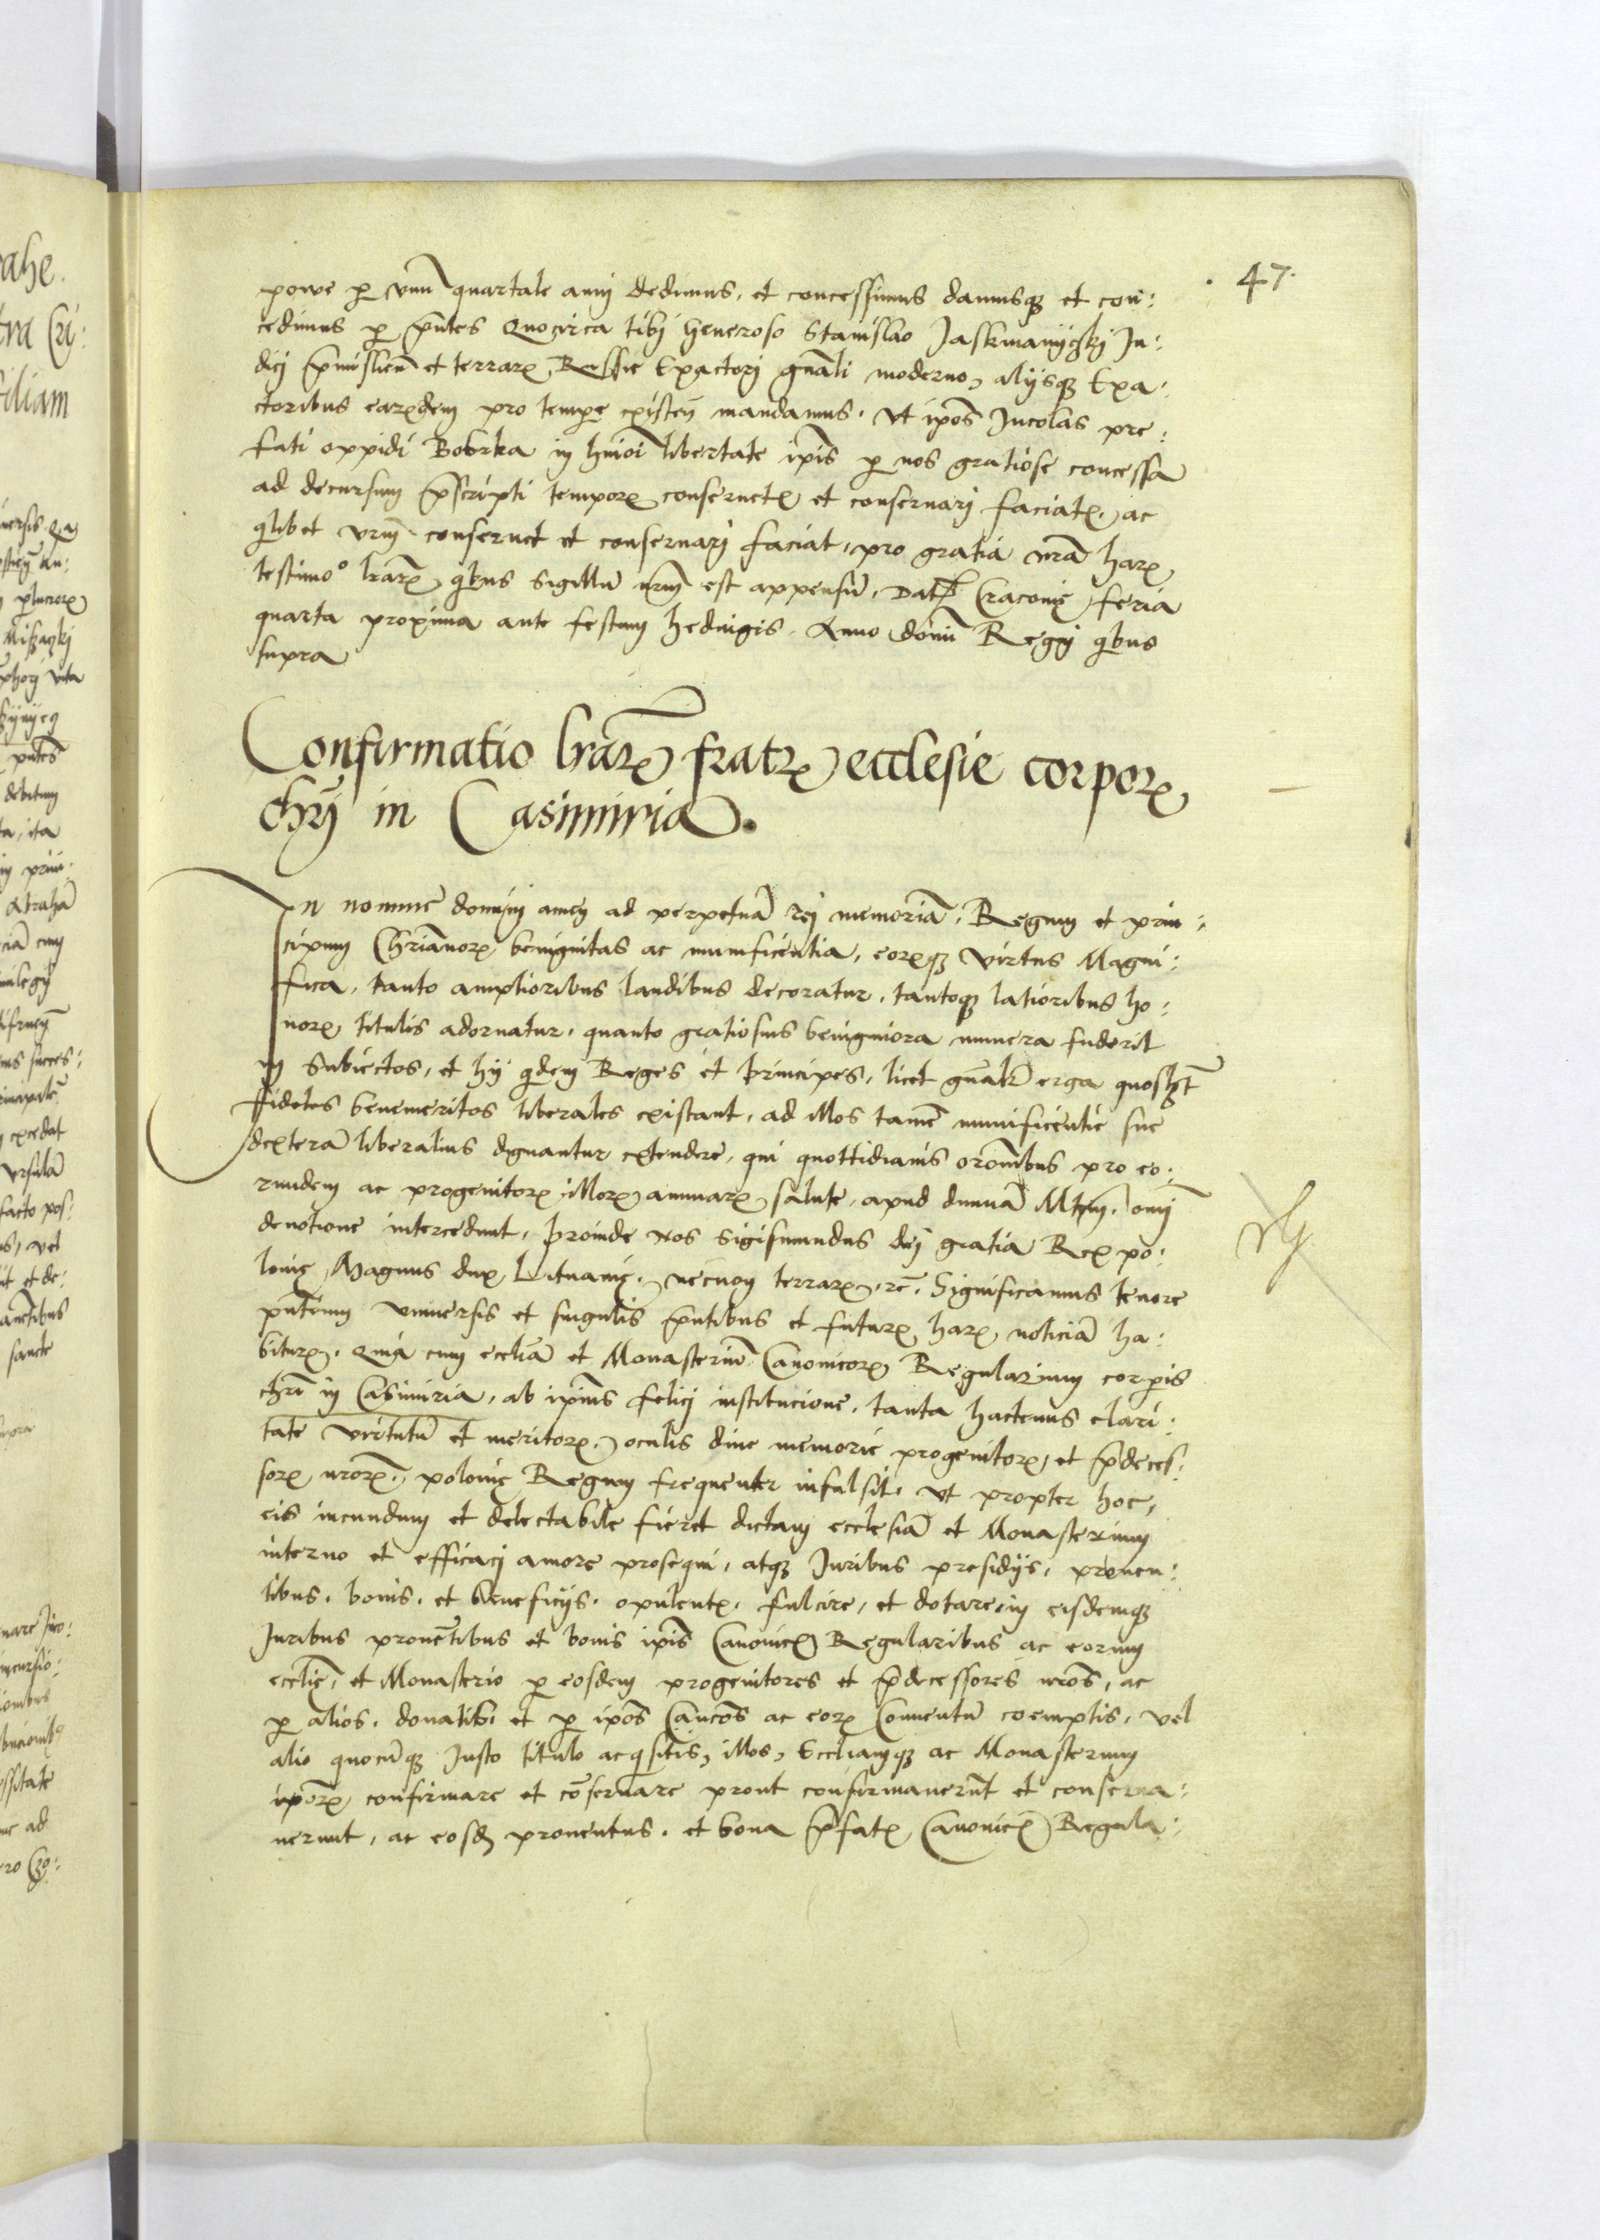 47.
powe p vnu quartale anni dedimus, et concessimus damusqȝ et con:
cedimus p pntes Quocirca tibi Generoso Stanislao Jaskmanyczkj Ju:
dicj pmislien et terrarꝝ Russie Exactorj gnali moderno, alijsqȝ Exa:
ctoribus earꝝdem pro tempe existen mandamus. Vt ipos Jncolas pre:
fati oppidi Bobrka in hmoi libertate ipis p nos gratiose concessa
ad decursum pscripti temporꝝ conseruetꝝ et conseruarj faciatꝝ. ac
qlibet vrm conseruet et conseruarj faciat, pro gratia nra harꝝ
testimo° lrarꝝ qbus sigillu nrm est appensu. Datꝝ Cracouię feria
quarta proxima ante festum hedwigis. Anno domi Regnj qbus
supra
Confirmatio lrarꝝ fratrꝝ ecclesie corporꝝ
chrj in Casimiria.
Jn nomine dominj amen ad perpetua rej memoria. Regum et prin:
cipum Chrianorꝝ benignitas ac munificentia, eorꝝqȝ virtus Magni:
fica, tanto amplioribus laudibus decoratur, tantoqȝ latioribus ho:
norꝝ titulis adornatur, quanto gratiosius benigniora munera fuderit
in Subiectos, et hij qdem Reges et principes, licet gnalr erga quoslȝt
fideles benemeritos liberales existant, ad illos tame munificentie sue
dextera liberalius dignantur extendere, qui quottidianis oronibus pro eo:
rundem ac progenitorꝝ illorꝝ animarꝝ salute, apud diuina Mtem, omj
deuotione intercedunt, proinde Nos Sigismundus dej gratia Rex po:
lonię, Magnus dux Lituanię. necnon terrarꝝ. rc. Significamus tenore
pntium vniuersis et singulis pntibus et futurꝝ harꝝ noticia ha:
biturꝝ. Quia cum ecclia et Monasteriu Canonicorꝝ Regularium corpis
chri in Casimiria, ab ipius felicj institucione, tanta hactenus clari:
tate virtutu et meritorꝝ, oculis diue memorie progenitorꝝ, et pdeces:
sorꝝ nrorꝝ, polonię Regum frequenter infulsit, vt propter hoc,
eis iucundum et delectabile fieret dictam ecclesia et Monasterium
interno et efficacj amore prosequi, atqȝ Juribus presidijs, prouen:
tibus, bonis, et beneficijs, opulentꝝ, fulcire, et dotare, in eisdemqȝ
Juribus prouetibus et bonis ipis Canonicꝝ Regularibus ac eorum
ecclię, et Monasterio p eosdem progenitores et pdecessores nros, ac
p alios, donatib, et p ipos Cancos ac eorꝝ Conuentu coemptis, vel
alio quocuqȝ Justo titulo acqsitis, illos, Eccliamqȝ ac Monasterium
iporꝝ confirmare et coseruare prout confirmauerut et conserua:
uerunt, ac eosd prouentus, et bona pfatꝝ Canonicꝝ Regula: